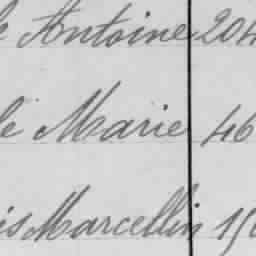 e Antoine 204
le Marie 46
is Marcellin 15